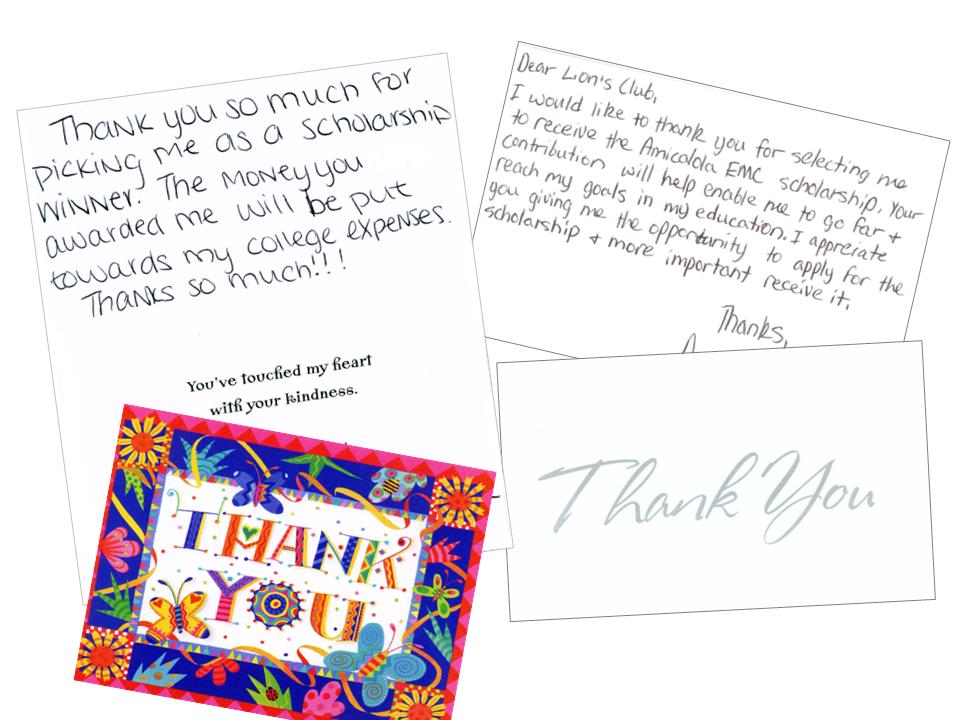 Thank you so much for
picking me as a scholarship
winner. The money you
awarded me will be put
towards my college expenses.
Thanks so much!!!
You've touched my heart
with your kindness.
Dear Lion's Club,
I would like to thank you for selecting me
to receive the Amicalola EMC scholarship. Your
contribution will help enable me to go far +
reach my goals in my education. I appreciate
you giving me the opportunity to apply for the
scholarship + more important receive it.
Thanks,
THANK
YOU
Thank You